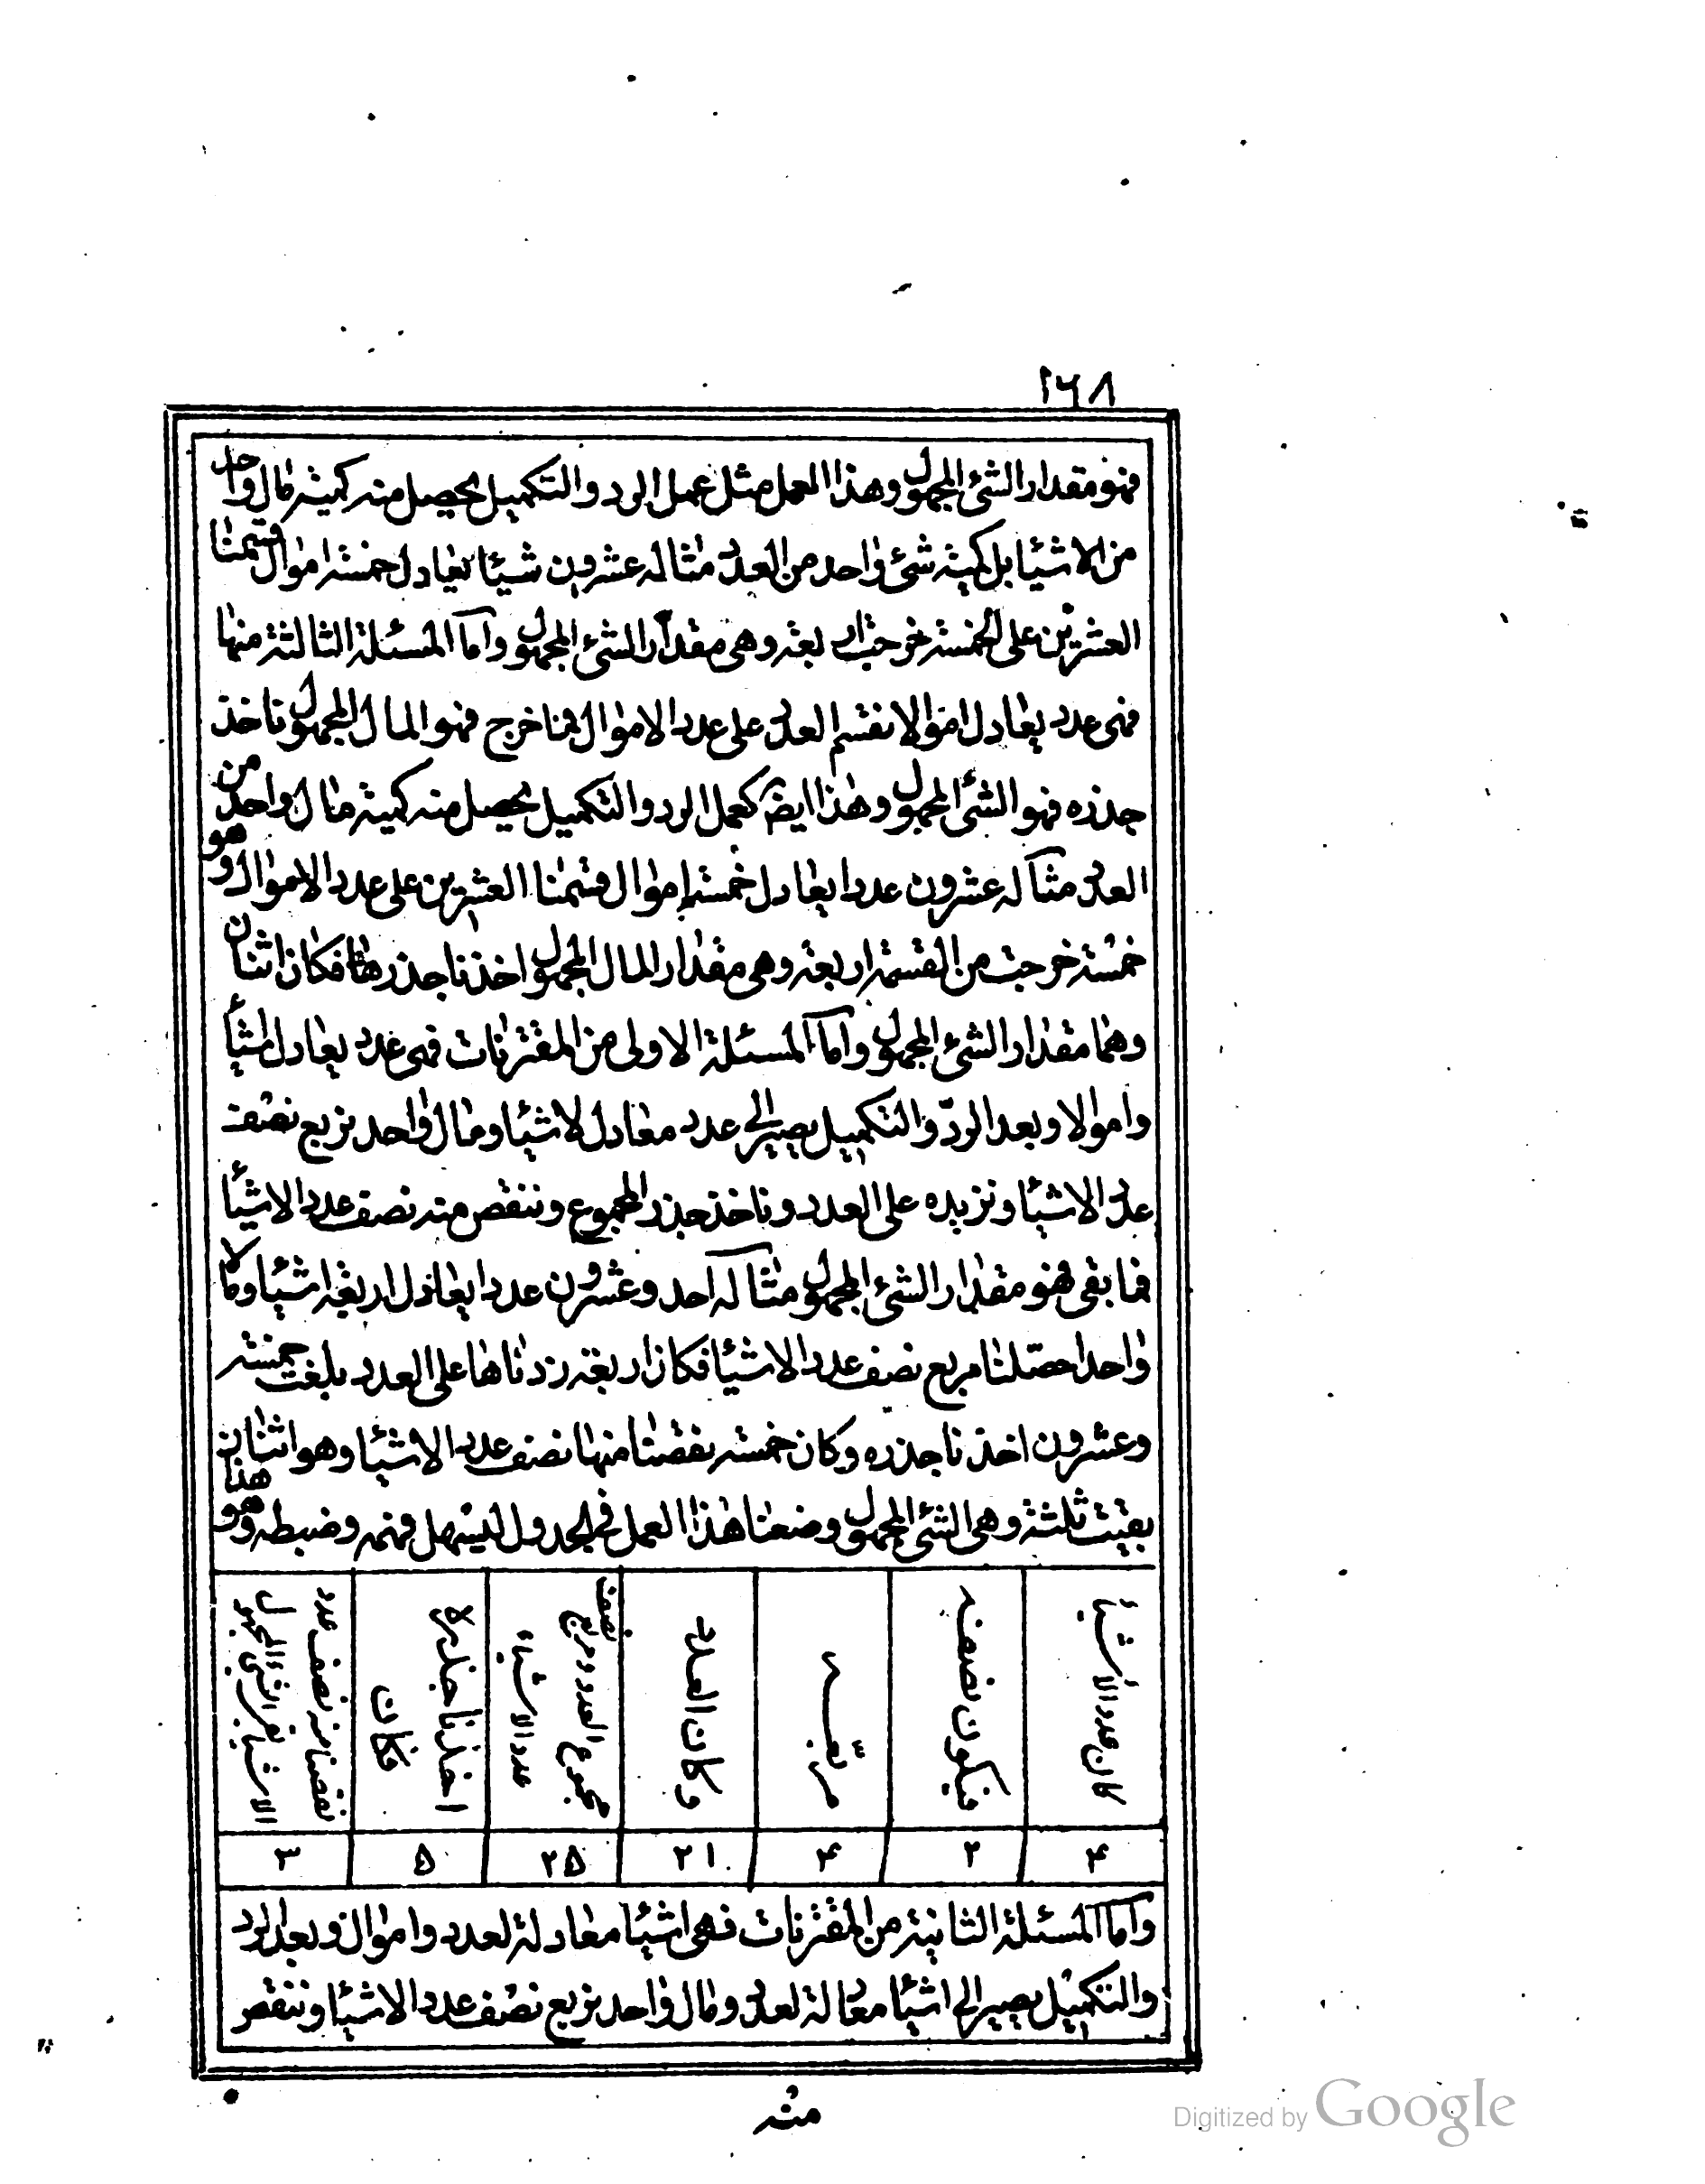 ١٦٨
فهو مقدار الشئ المجهول وهذا العمل مثل عمل الرد والتكميل يحصل منه كمية مال واحد
من الاشيا بل كمية شئ واحد من العدد مثاله عشرون شيئا يعادل خمسة اموال قسمنا
العشرين على الخمسة خرجت اربعة وهى مقدار الشئ المجهول واما المسئلة الثالثة منها
فهى عدد يعادل اموالا نقسم العدد على عدد الاموال فما خرج فهو المال المجهول ناخذ
جذره فهو الشئ المجهول وهذا ايضا كعمل الرد والتكميل يحصل منه كمية مال واحد من
العدد مثاله عشرون عددا يعادل خمسة اموال قسمنا العشرين على عدد الاموال وهو
خمسة خرجت من القسمة اربعة وهى مقدار المال المجهول اخذنا جذرها فكان اثنان
وهما مقدار الشئ المجهول واما المسئلة الاولى من المقترنات فهى عدد يعادل اشيأ
واموالا وبعد الردّ والتكميل يصير الى عدد معادل لاشيا ومال واحد نربع نصف
عدد الاشيا ونزيده على العدد وناخذ جذر المجموع وننقص منه نصف عدد الاشيأ
فما بقى فهو مقدار الشئ المجهول مثاله احد وعشرون عددا يعادل اربعة اشيا ومالا
واحدا حصّلنا مربع نصف عدد الاشيا فكان اربعة زدناها على العدد بلغت خمسة
وعشرون اخذنا جذره وكان خمسة نقصنا منها نصف عدد الاشيا وهو اثنان
بقيت ثلثة وهى الشئ المجهول وضعنا هذا العمل فى الجدول ليسهل فهمه وضبطه وهو هذا
كان عدد الاشيأ
فيكون نصفه
مربعه
وكان العدد
مجموع العدد ومربع نصف عدد الاشياء
اخذنا جذره فكان
نقصنا منه نصف عدد الاشيا بقى الشئ المجهول
۴
۲
۴
۲۱
۲۵
۵
۳
واما المسئلة الثانية من المقترنات فهى اشيا معادلة لعدد واموال وبعد الرد
والتكميل يصير الى اشيا معادلة لعدد ومال واحد نربع نصف عدد الاشيا وننقص
منه
Digitized by Google